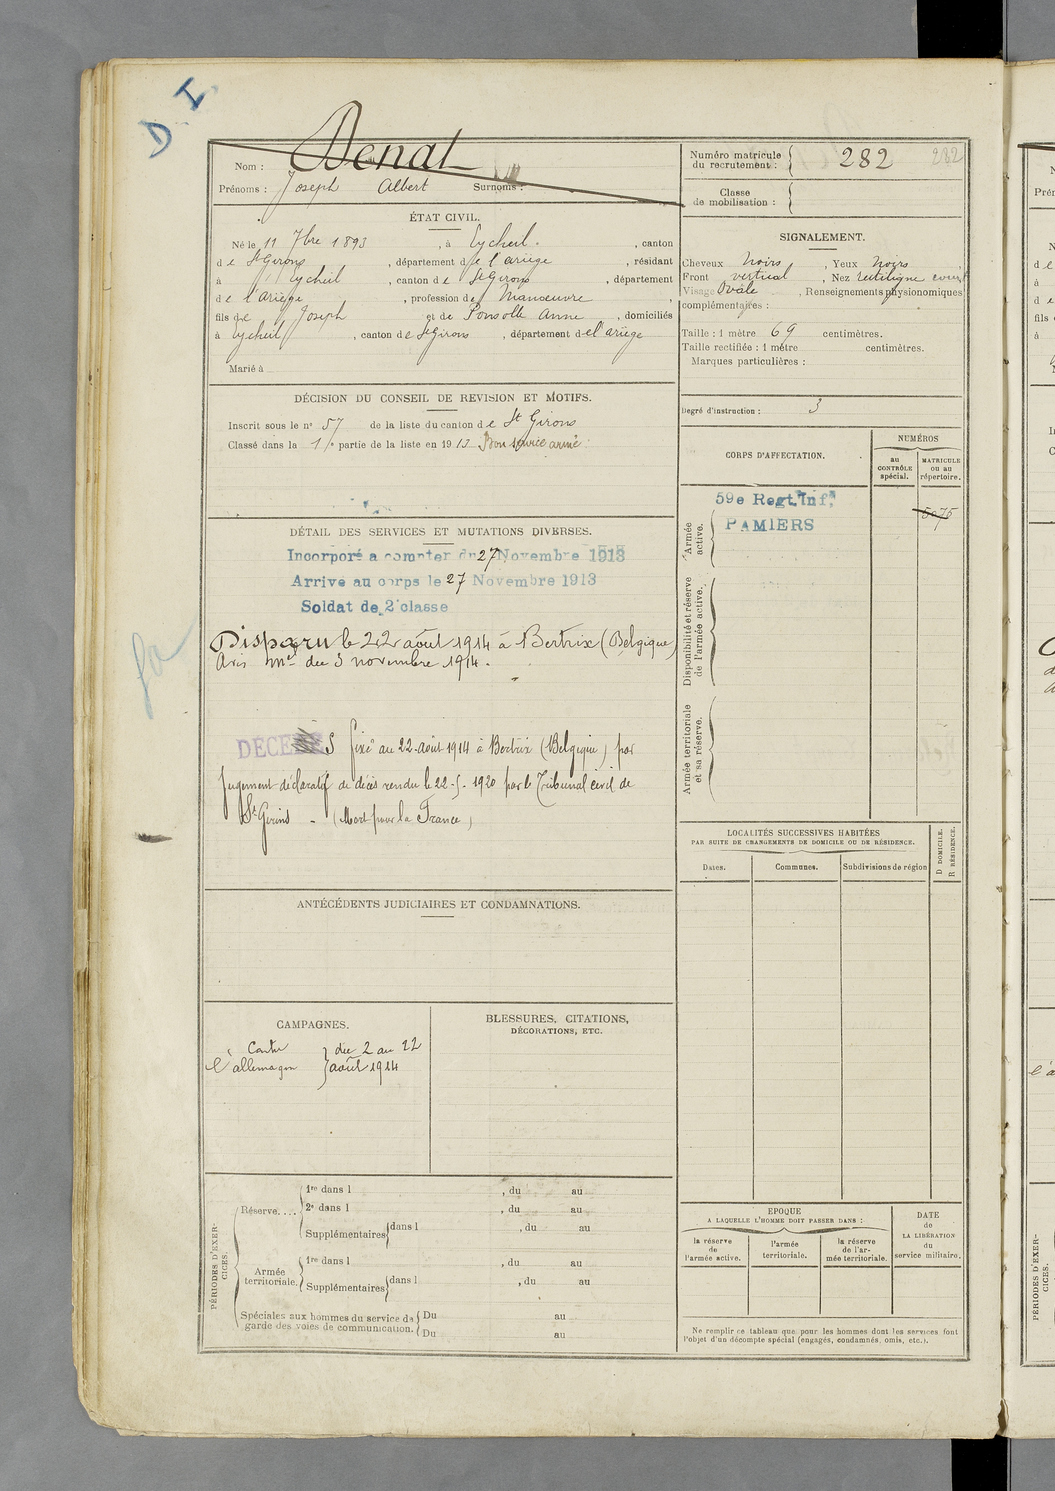 D. I.
Nom : Denat
Prénoms : Joseph Albert Surnoms :
ÉTAT CIVIL.
Né le 11 7bre 1893 , à Eycheil. , canton
de St Girons , département de l'ariège , résidant
à Eycheil , canton de St Girons , département
de l'Ariège , profession de Manoeuvre ,
fils de Joseph et de Ponsolle Anne , domiciliés
à Eycheil , canton de St Girons , département de l'ariège
Marié à
DÉCISION DU CONSEIL DE REVISION ET MOTIFS.
Inscrit sous le n° 57 de la liste du canton de St Girons
Classé dans la 1re partie de la liste en 1913 Bon service armé
DÉTAIL DES SERVICES ET MUTATIONS DIVERSES.
Incorporé a compter du 27 Novembre 1913
Arrive au corps le 27 Novembre 1913
Soldat de 2 classe
Disparu le 22 août 1914 à Bertrix (Belgique)
Avis mel du 3 novembre 1914.
DÉCÈS fixé au 22-août 1914 à Bertrix (Belgique) par
jugement déclaratif de décès rendu le 22-5-1920 par le Tribunal civil de
St Girons - (Mort pour la France)
ANTÉCÉDENTS JUDICIAIRES ET CONDAMNATIONS.
CAMPAGNES.
Contre } du 2 au 22
l'allemagne } août 1914
BLESSURES, CITATIONS,
DÉCORATIONS, ETC.
PÉRIODES D'EXERCICES.
Réserve....
1re dans l , du au
2e dans l , du au
Supplémentaires dans l , du au
Armée territoriale.
1re dans l , du au
Supplémentaires dans l , du au
Spéciales aux hommes du service de garde des voies de communication.
Du au
Du au
Numéro matricule du recrutement : 282 282
Classe de mobilisation :
SIGNALEMENT.
Cheveux noirs , Yeux noirs ,
Front vertical , Nez rectiligne
Visage Ovale , Renseignements physionomiques
complémentaires :
Taille : 1 mètre 69 centimètres.
Taille rectifiée : 1 mètre centimètres.
Marques particulières :
Degré d'instruction : 3
CORPS D'AFFECTATION.
NUMÉROS
au CONTRÔLE spécial.
MATRICULE ou au répertoire.
Armée active.
59e Regt. Inf.
PAMIERS
5075
Disponibilité et réserve de l'armée active.
Armée territoriale et sa réserve.
LOCALITÉS SUCCESSIVES HABITÉES
PAR SUITE DE CHANGEMENTS DE DOMICILE OU DE RÉSIDENCE.
Dates.
Communes.
Subdivisions de région
D DOMICILE.
R RÉSIDENCE.
EPOQUE
A LAQUELLE L'HOMME DOIT PASSER DANS :
la réserve de l'armée active.
l'armée territoriale.
la réserve de l'armée territoriale.
DATE de LA LIBÉRATION du service militaire.
Ne remplir ce tableau que pour les hommes dont les services font
l'objet d'un décompte spécial (engagés, condamnés, omis, etc.).